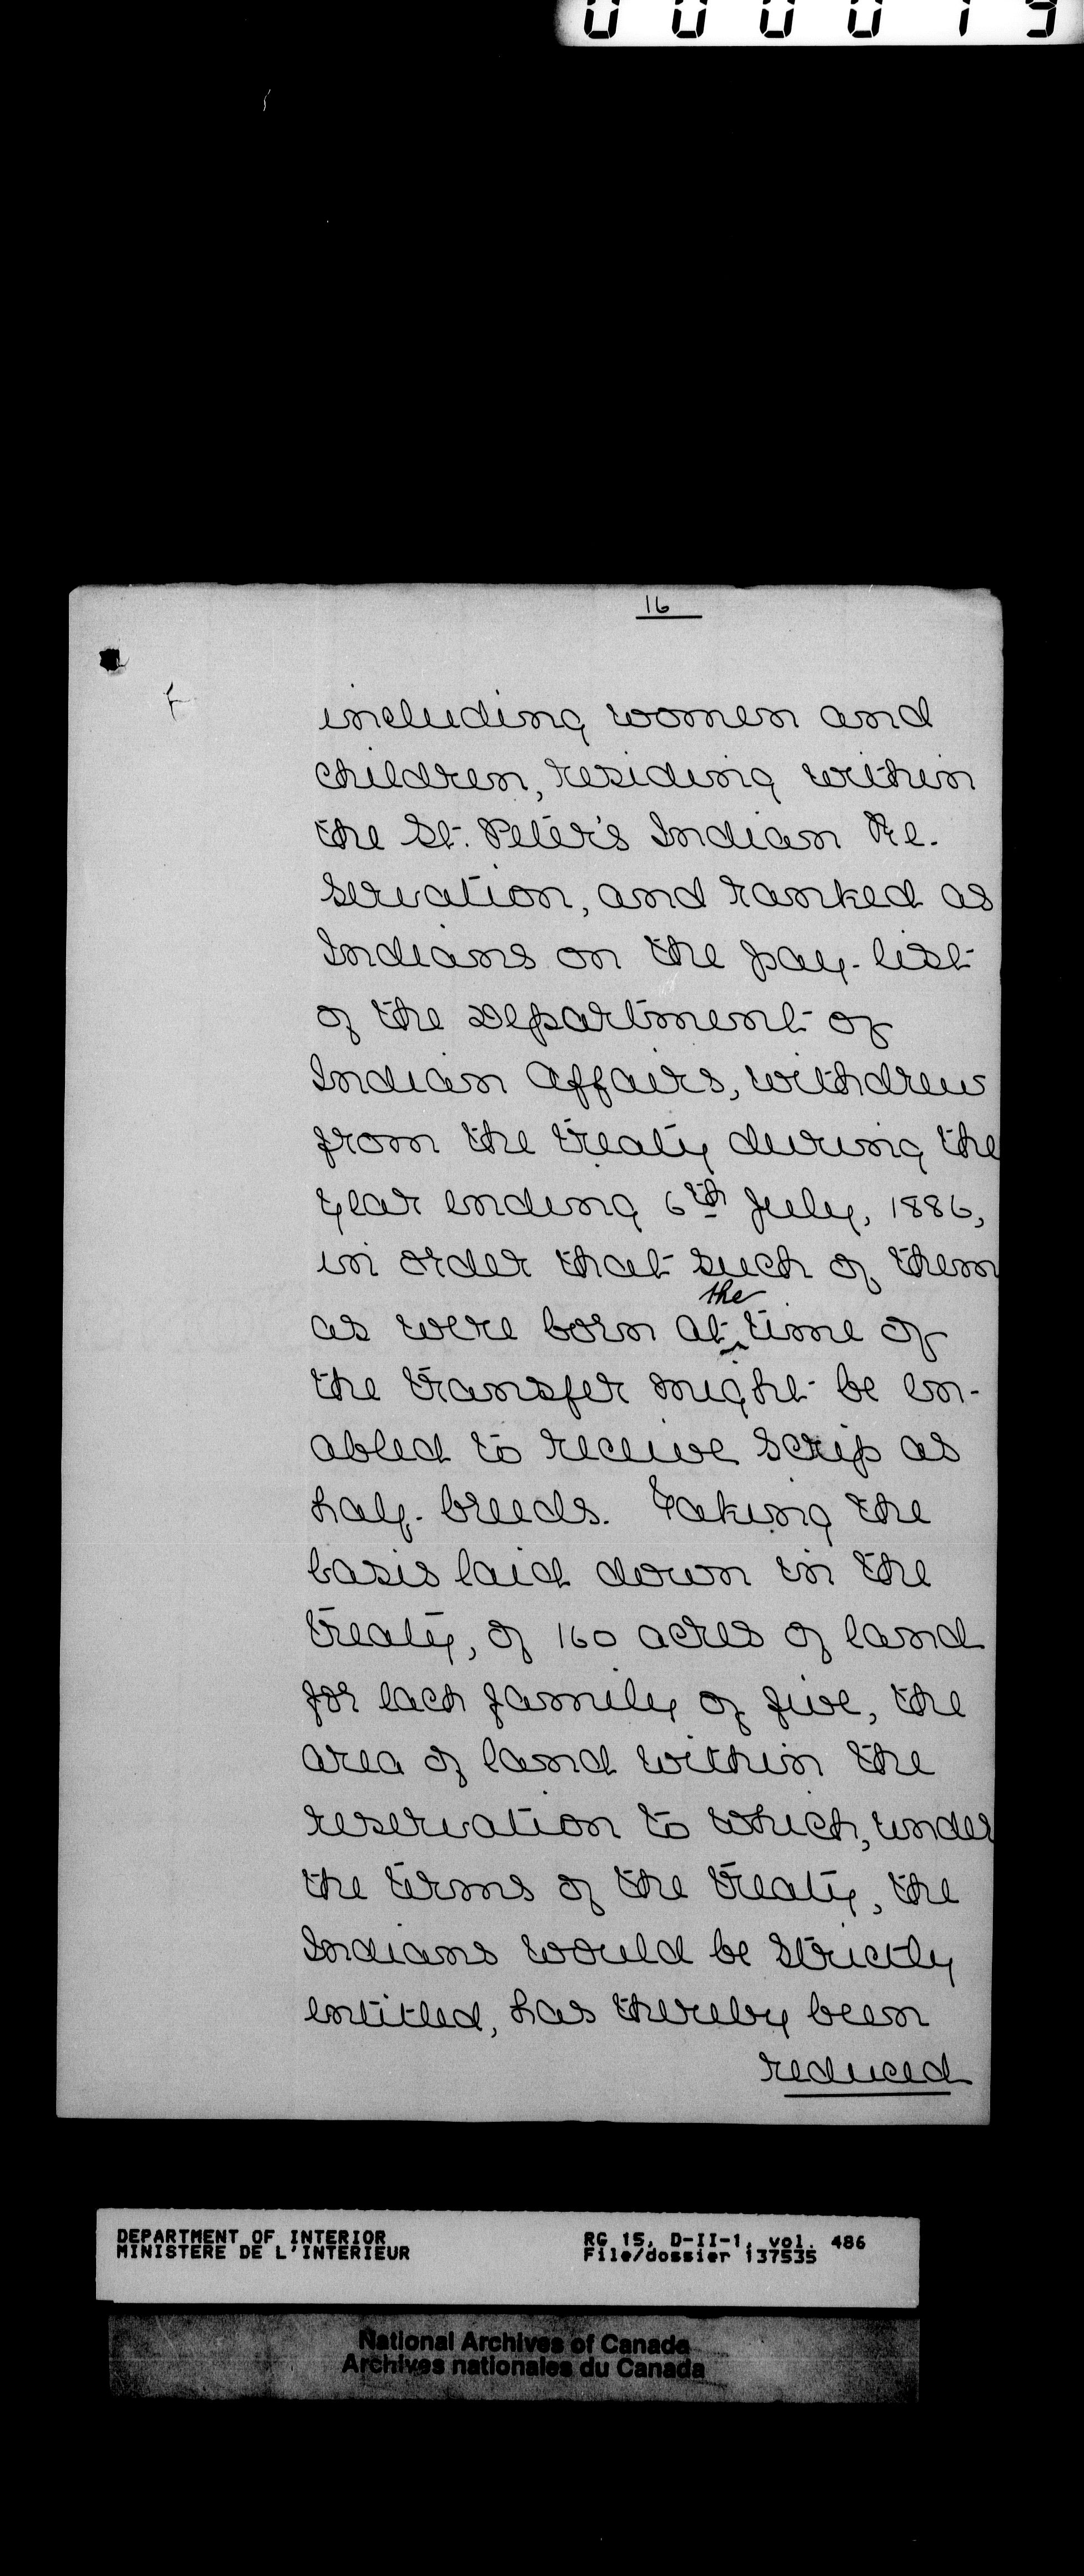 000019
16
including women and
children, residing within
the St. Peter's Indian Re-
servation, and ranked as
Indians on the pay-list
of the Department of
Indian Affairs, withdrew
from the treaty during the
year ending 6th July, 1886,
in order that such of them
as were born at the time of
the transfer might be en-
abled to receive scrip as
half-breeds. Taking the
basis laid down in the
treaty, of 160 acres of land
for each family of five, the
area of land within the
reservation to which, under
the terms of the treaty, the
Indians would be strictly
entitled, has thereby been
reduced
DEPARTMENT OF INTERIOR RG 15, D-II-1, vol. 486
MINISTERE DE L'INTERIEUR File/dossier 137535
National Archives of Canada
Archives nationales du Canada